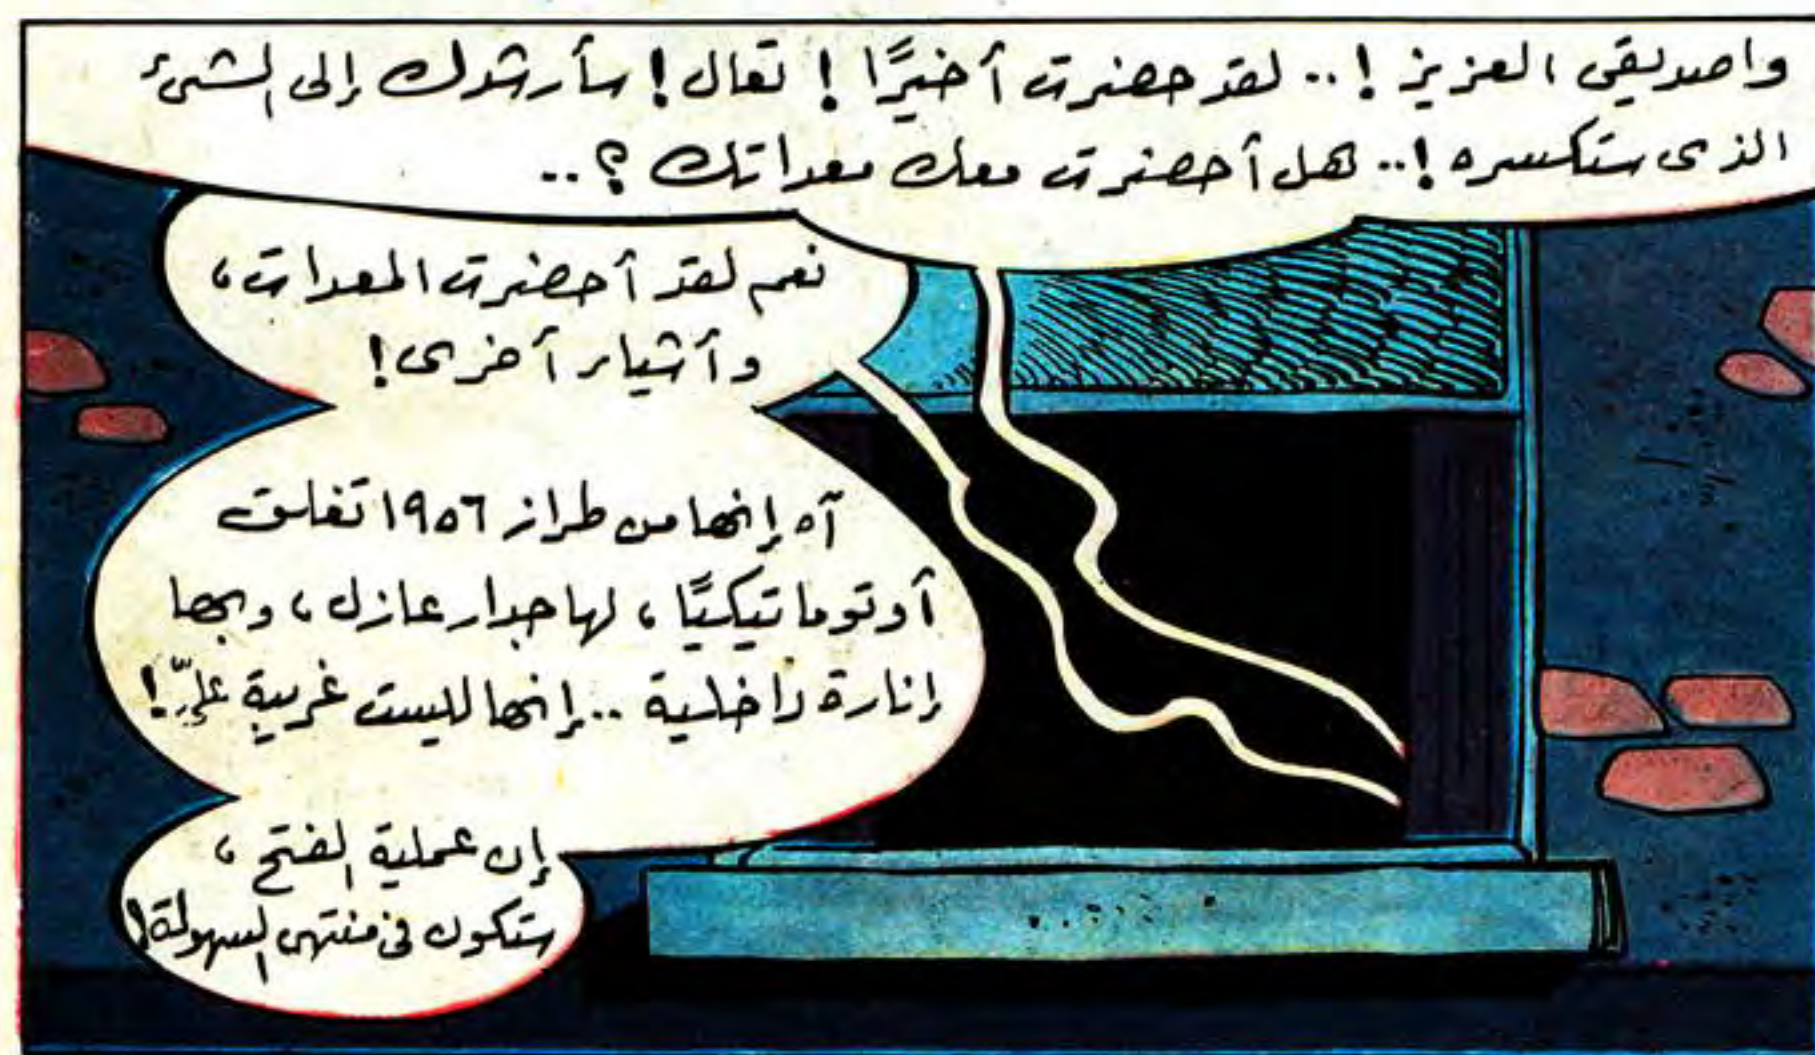 واصديقى العزيز !.. لقد حضرت أخيرًا ! تعال ! سأرشدك إلى الشئ
الذى ستكسره !.. هل أحضرت معك معداتك ؟..
نعم لقد أحضرت المعدات ،
وأشياء أخرى !
آه إنها من طراز ١٩٥٦ تغلق
أوتوماتيكيًا ، لها جدار عازل ، وبها
إنارة داخلية .. إنها ليست غريبةٍ علىّ !
إن عملية الفتح ،
ستكون فى منتهى السهولة !